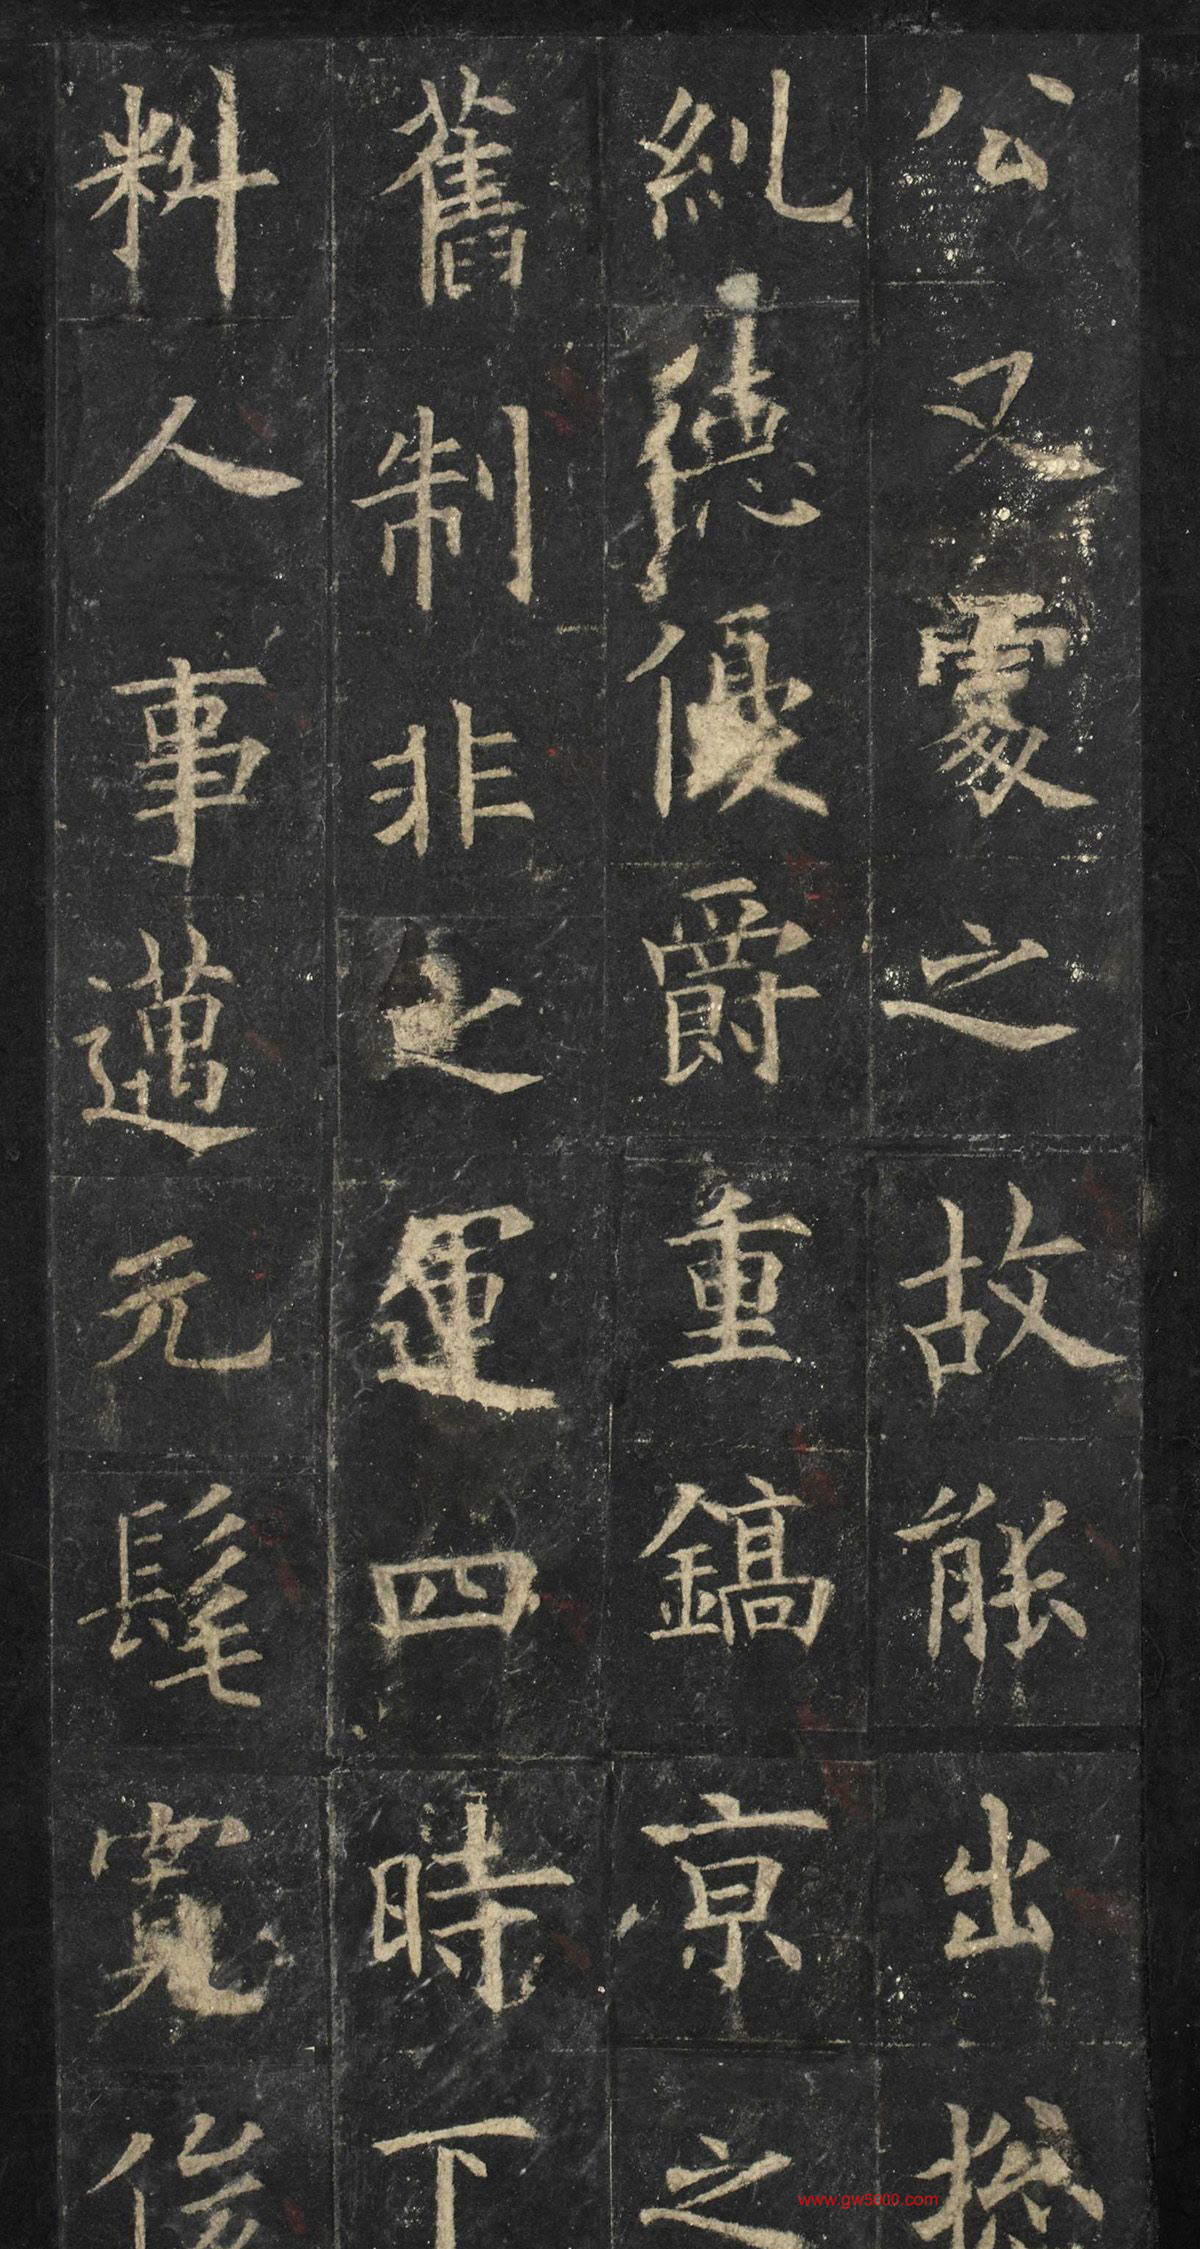 公又處之故能出揔
糺德優爵重鎬京之
舊制非之運四時下
料人事邁元髦寬俊
www.gw5000.com